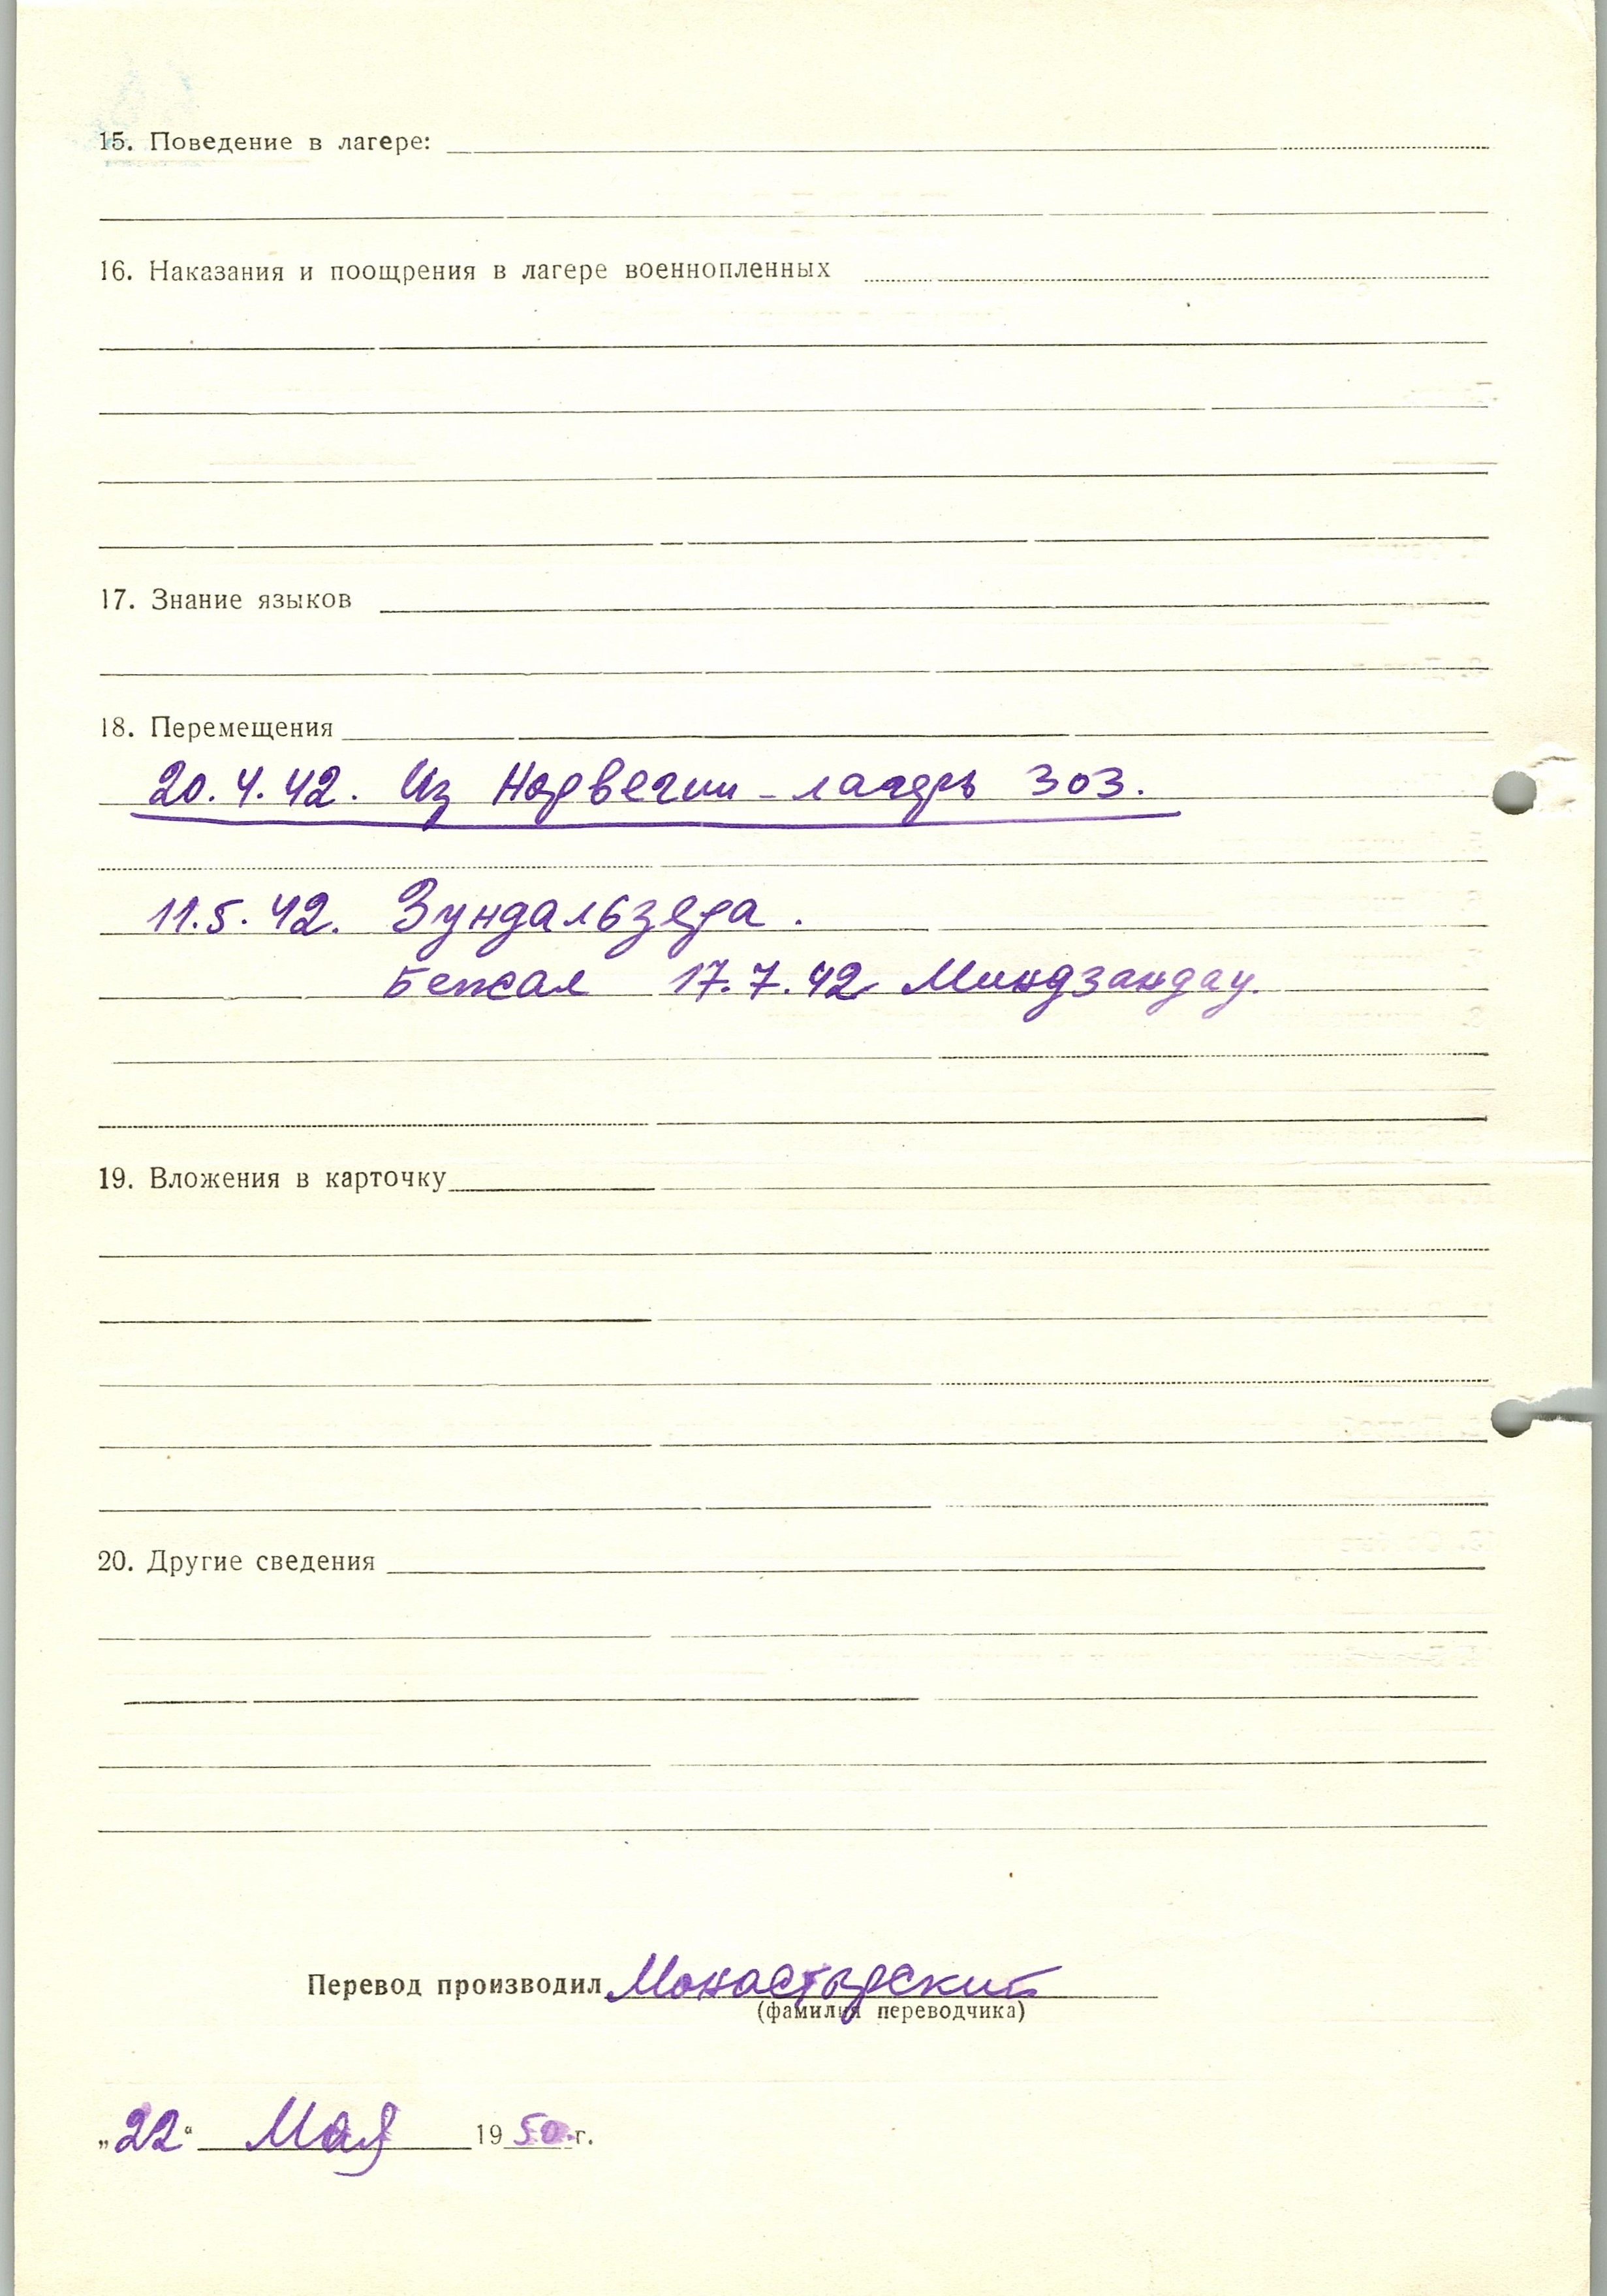 15. Поведение в лагере:
16. Наказания и поощрения в лагере военнопленных
17. Знание языков
18. Перемещения
20.4.42. Из Норвегии - лагерь 303.
11.5.42. Зундальзера.
Бежал 17.7.42 Миндзандау.
19. Вложения в карточку
20. Другие сведения
Перевод производил Монастырский
(фамилия переводчика)
„22“ Мая 1950 г.